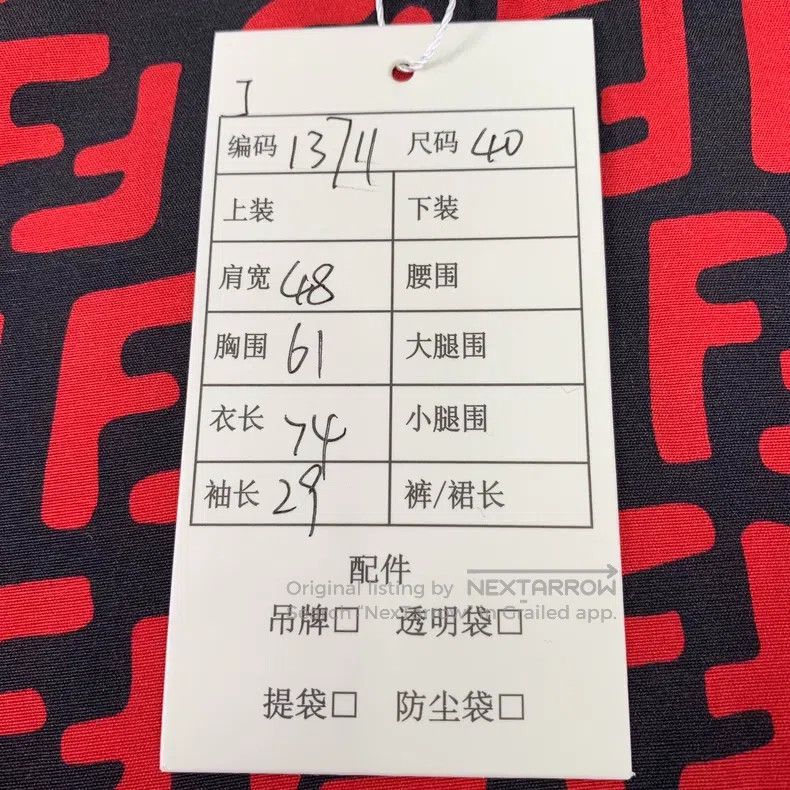 J
编码 1371 尺码 40
上装 下装
肩宽 48 腰围
胸围 61 大腿围
衣长 74 小腿围
袖长 29 裤/裙长
配件
Original listing by NEXTARROW
Search "NexTarrow" in Grailed app.
吊牌□ 透明袋□
提袋□ 防尘袋□